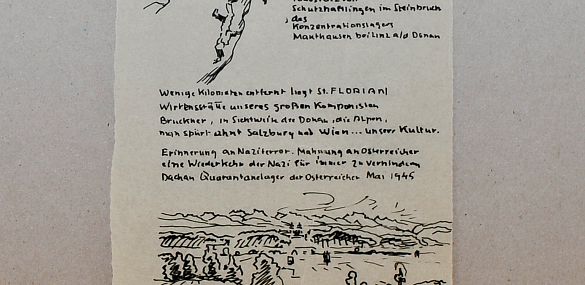 Schutzhäftlingen im Steinbruch
des
Konzentrationslagers
Mauthausen bei Linz a/d Donau
Wenige Kilometer entfernt liegt St. FLORIAN
Wirkensstätte unseres großen Komponisten
Bruckner, in Sichtweite die Donau, die Alpen,
man spürt ahnt Salzburg und Wien... unser Kultur.
Erinnerung an Naziterror. Mahnung an Österreicher
eine Wiederkehr der Nazi für immer zu verhindern
Dachau Quarantänelager der Österreicher Mai 1945